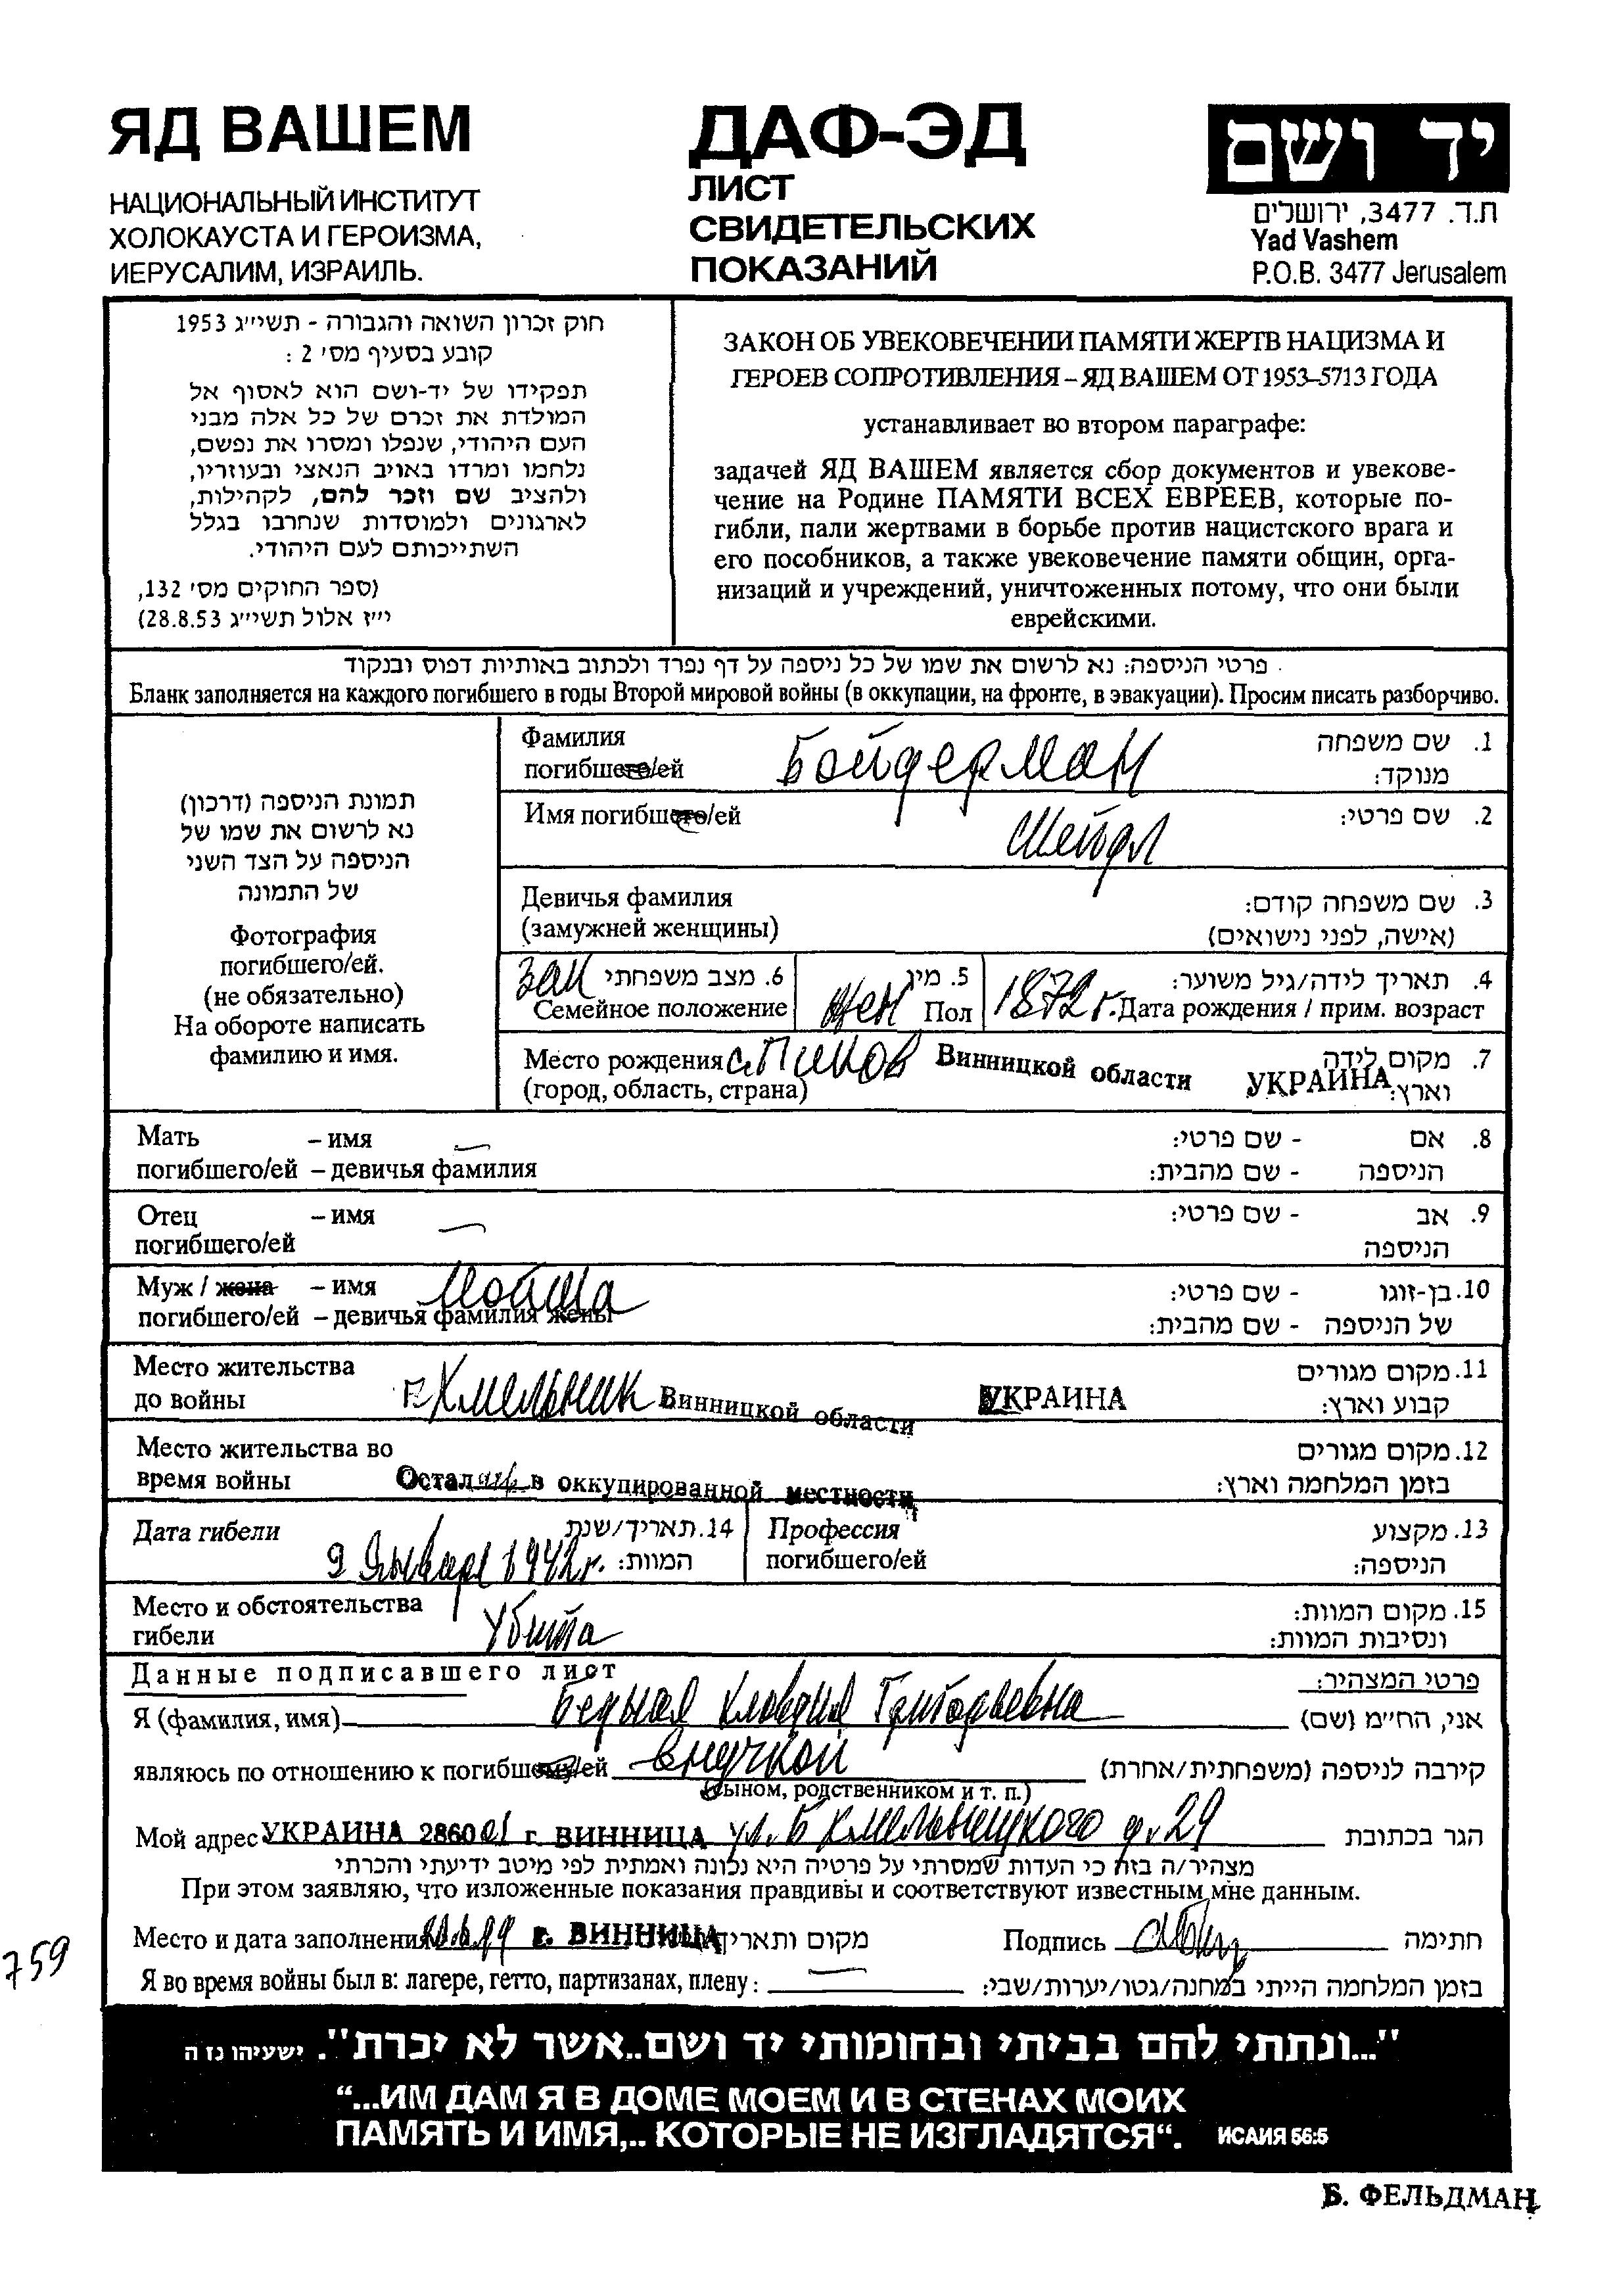 ЯД ВАШЕМ
НАЦИОНАЛЬНЫЙ ИНСТИТУТ
ХОЛОКАУСТА И ГЕРОИЗМА,
ИЕРУСАЛИМ, ИЗРАИЛЬ.
ДАФ-ЭД
ЛИСТ
СВИДЕТЕЛЬСКИХ
ПОКАЗАНИЙ
יד ושם
ת.ד. 3477, ירושלים
Yad Vashem
P.O.B. 3477 Jerusalem
חוק זכרון השואה והגבורה - תשי״ג 1953
קובע בסעיף מס׳ 2 :
תפקידו של יד-ושם הוא לאסוף אל
המולדת את זכרם של כל אלה מבני
העם היהודי, שנפלו ומסרו את נפשם,
נלחמו ומרדו באויב הנאצי ובעוזריו,
ולהציב שם וזכר להם, לקהילות,
לארגונים ולמוסדות שנחרבו בגלל
השתייכותם לעם היהודי.
(ספר החוקים מס׳ 132,
י״ז אלול תשי״ג 28.8.53)
ЗАКОН ОБ УВЕКОВЕЧЕНИИ ПАМЯТИ ЖЕРТВ НАЦИЗМА И
ГЕРОЕВ СОПРОТИВЛЕНИЯ – ЯД ВАШЕМ ОТ 1953–5713 ГОДА
устанавливает во втором параграфе:
задачей ЯД ВАШЕМ является сбор документов и увекове-
чение на Родине ПАМЯТИ ВСЕХ ЕВРЕЕВ, которые по-
гибли, пали жертвами в борьбе против нацистского врага и
его пособников, а также увековечение памяти общин, орга-
низаций и учреждений, уничтоженных потому, что они были
еврейскими.
פרטי הניספה: נא לרשום את שמו של כל ניספה על דף נפרד ולכתוב באותיות דפוס ובנקוד
Бланк заполняется на каждого погибшего в годы Второй мировой войны (в оккупации, на фронте, в эвакуации). Просим писать разборчиво.
תמונת הניספה (דרכון)
נא לרשום את שמו של
הניספה על הצד השני
של התמונה
Фотография
погибшего/ей.
(не обязательно)
На обороте написать
фамилию и имя.
Фамилия Бойдерман 1. שם משפחה
погибшего/ей מנוקד:
Имя погибшего/ей Шейдл 2. שם פרטי:
Девичья фамилия 3. שם משפחה קודם:
(замужней женщины) (אישה, לפני נישואים)
зам 6. מצב משפחתי 5. מין 4. תאריך לידה/גיל משוער:
Семейное положение жен Пол 1872 г. Дата рождения / прим. возраст
Место рождения с. Пиков Винницкой области УКРАИНА 7. מקום לידה
(город, область, страна) וארץ:
Мать – имя — 8. אם - שם פרטי:
погибшего/ей – девичья фамилия הניספה - שם מהבית:
Отец – имя — 9. אב - שם פרטי:
погибшего/ей הניספה
Муж / жена – имя Мойша 10. בן-זוגו - שם פרטי:
погибшего/ей – девичья фамилия жены של הניספה - שם מהבית:
Место жительства 11. מקום מגורים
до войны г. Хмельник Винницкой области УКРАИНА קבוע וארץ:
Место жительства во 12. מקום מגורים
время войны Осталась в оккупированной местности בזמן המלחמה וארץ:
Дата гибели 14. תאריך/שנת Профессия 13. מקצוע
9 января 1942 г. המוות: погибшего/ей הניספה:
Место и обстоятельства 15. מקום המוות:
гибели убита ונסיבות המוות:
Данные подписавшего лист פרטי המצהיר:
Я (фамилия, имя) Бедная Клавдия Григорьевна אני, הח״מ (שם)
являюсь по отношению к погибшему/ей внучкой קירבה לניספה (משפחתית/אחרת)
(сыном, родственником и т. п.)
Мой адрес УКРАИНА 286001 г. ВИННИЦА ул. Б Хмельницкого д. 29 הגר בכתובת
מצהיר/ה בזה כי העדות שמסרתי על פרטיה היא נכונה ואמתית לפי מיטב ידיעתי והכרתי
При этом заявляю, что изложенные показания правдивы и соответствуют известным мне данным.
Место и дата заполнения г. ВИННИЦА מקום ותאריך Подпись חתימה
Я во время войны был в: лагере, гетто, партизанах, плену: — בזמן המלחמה הייתי במחנה/גטו/יערות/שבי:
759
"...ונתתי להם בביתי ובחומותי יד ושם..אשר לא יכרת". ישעיהו נז ה
“...ИМ ДАМ Я В ДОМЕ МОЕМ И В СТЕНАХ МОИХ
ПАМЯТЬ И ИМЯ,.. КОТОРЫЕ НЕ ИЗГЛАДЯТСЯ“. ИСАИЯ 56:5
Б. ФЕЛЬДМАН